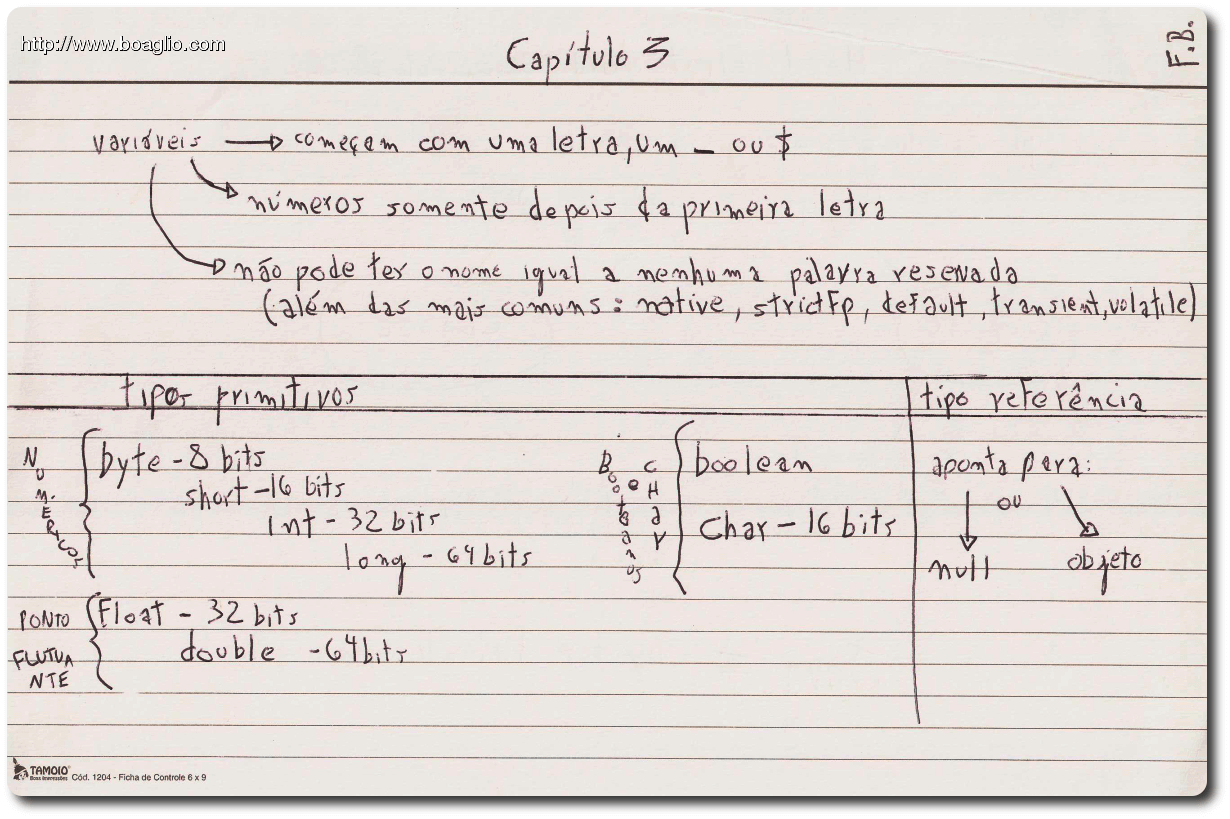 http://www.boaglio.com
Capítulo 3
F.B.
variáveis → começam com uma letra, um _ ou $
números somente depois da primeira letra
não pode ter o nome igual a nenhuma palavra reservada
(além das mais comuns: native, strictfp, default, transient, volatile)
tipos primitivos
tipo referência
NUMERICOS
byte - 8 bits
short - 16 bits
int - 32 bits
long - 64 bits
Booleanos e CHAR
boolean
Char - 16 bits
aponta para:
ou
null
objeto
PONTO
FLUTUA
NTE
Float - 32 bits
double - 64 bits
TAMOIO
Boas Impressões
Cód. 1204 - Ficha de Controle 6 x 9